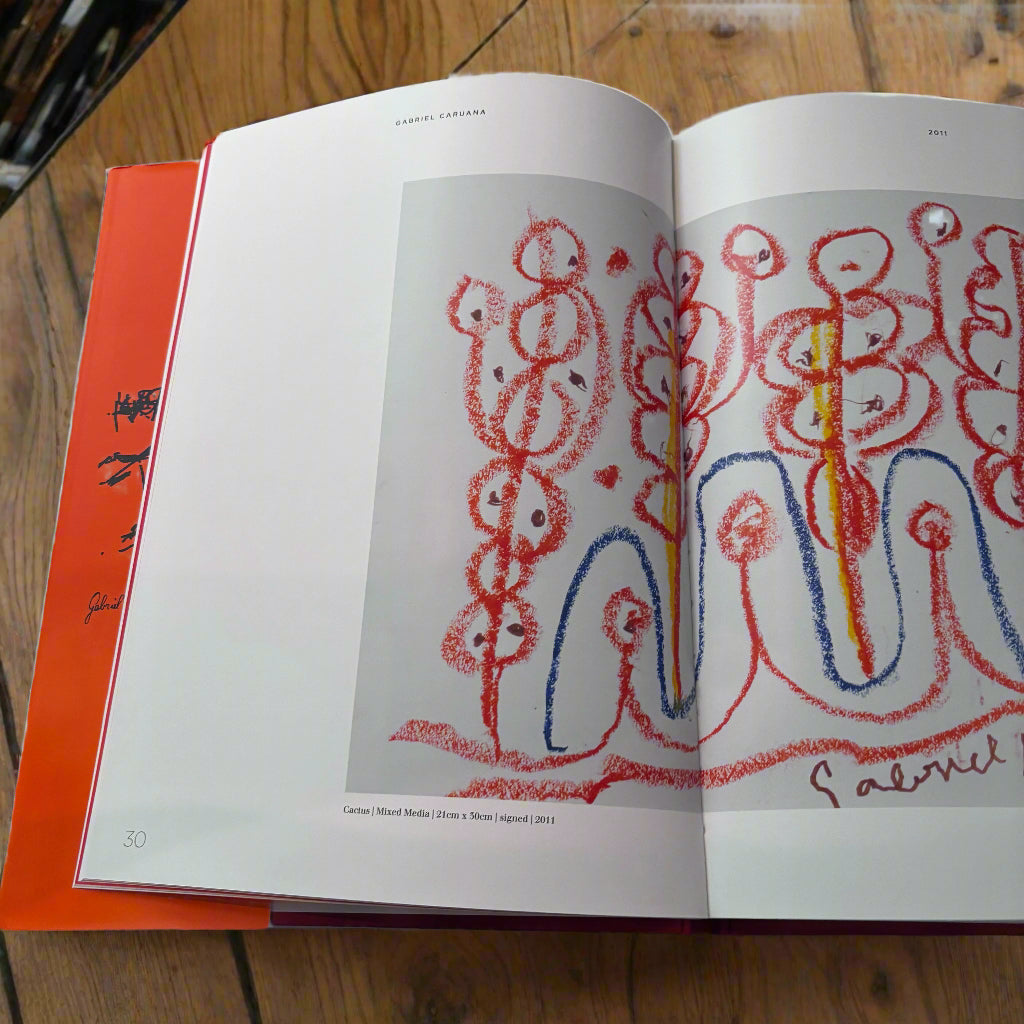 GABRIEL CARUANA
2011
Gabriel
Cactus | Mixed Media | 21cm x 30cm | signed | 2011
Gabriel
30